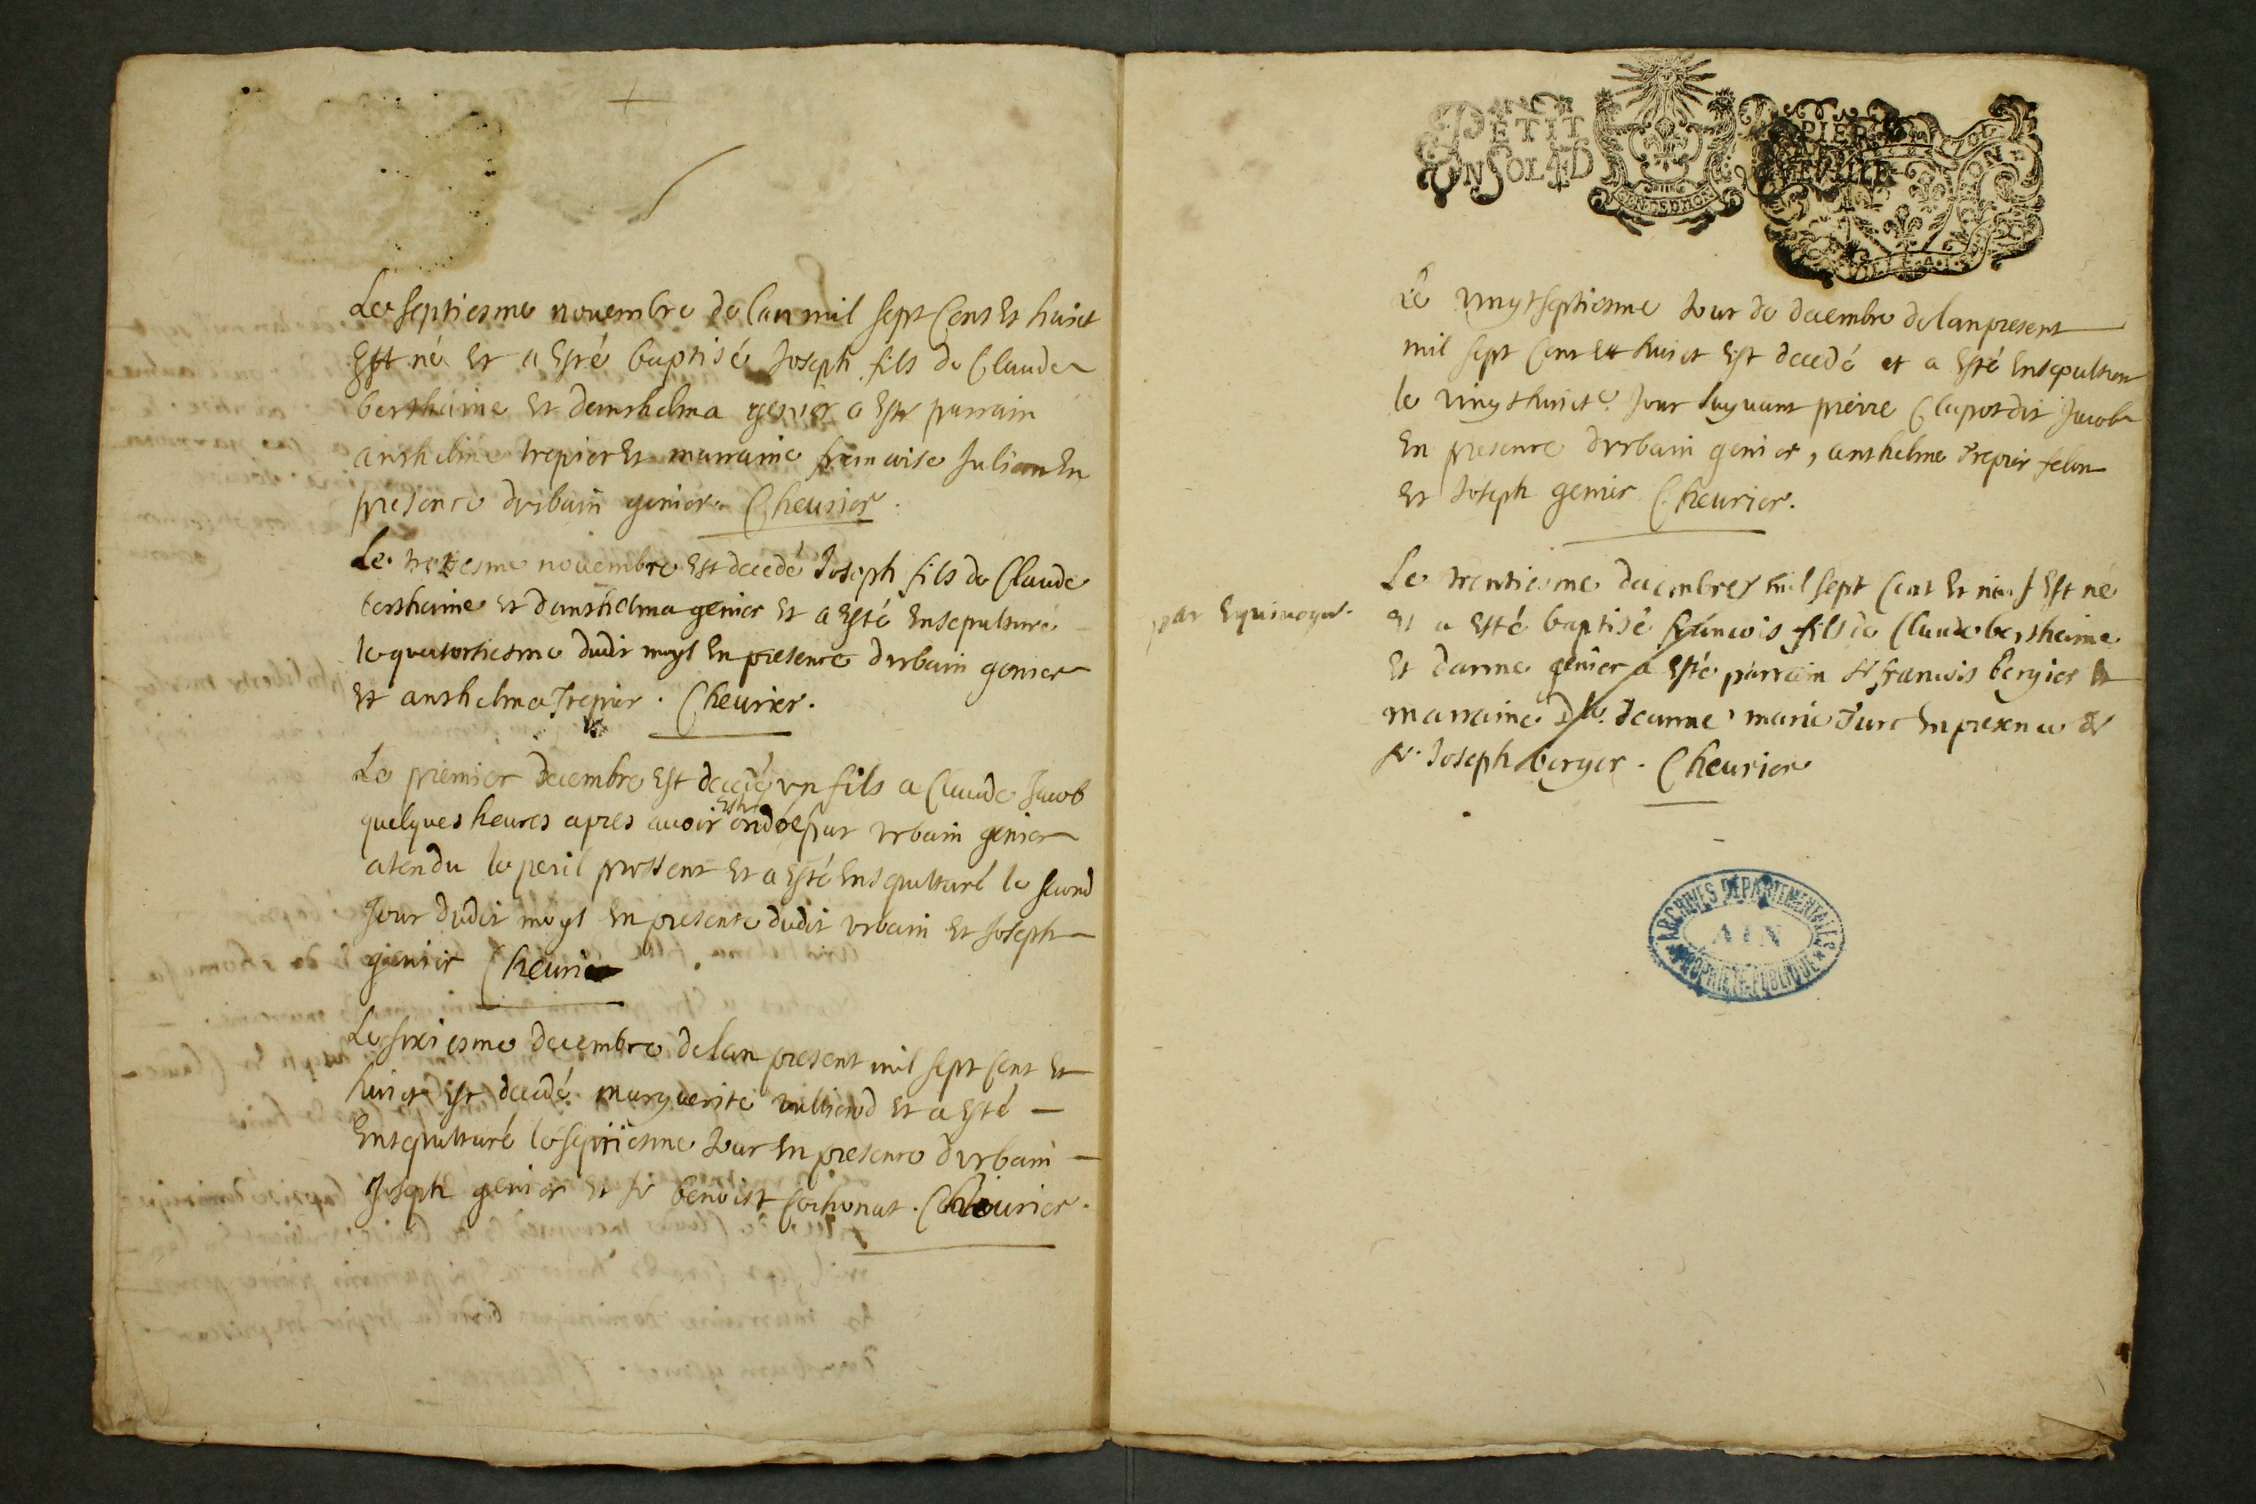 Le septiesme novembre de lan mil sept Cent Et huict
Est né Et a Esté baptisé Joseph fils de Claude
berthaine Et danthelma genier a Esté parrain
anthelme trepier Et marraine francoise Julian En
presence durbain genier. Cheurier.
Le treziesme nouembre Est decedé Joseph fils de Claude
berthaine Et danthelma genier Et a Esté Ensepulturé
le quatortiesme dudit moys En presence durbain genier
Et anthelme Trepier. Cheurier.
Le premier decembre Est decedé vn fils a Claude Jacob
quelques heures apres auoir Esté ondoé par vrbain genier
atendu le peril pressent Et a Esté Ensepulturé le second
Jour dudit moys En presence dudit vrbain Et Joseph
genier Cheurier
Le sixiesme decembre de lan present mil sept cent Et
huict Est decedé marguerite vulliend Et a Esté
Ensepulturé le septiesme Jour En presence durbain
Joseph genier Et sr benoist Cochonat. Cheurier.
PETIT PAPIER
UN SOL 4 D LA FEUILLE
GEN. DE DIJON
Le vingtseptiesme Jour de decembre de lan present
mil sept Cent Et huict Est decedé et a Esté Ensepulturé
le vingthuict.e Jour suyuant pierre Clapot dit Jacob
En presence durbain genier, anthelme Trepier felin
Et Joseph genier Cheurier.
par Equivoque.
Le trentiesme decembre mil sept Cent Et neuf Est né
Et a Esté baptisé francois fils de Claude berthaine
Et danne genier a Esté parrain sr francois bergier Et
marraine Dlle. Jeanne marie Turc En presence de
sr. Joseph berger. Cheurier
ARCHIVES DÉPARTEMENTALES
AIN
PROPRIÉTÉ PUBLIQUE